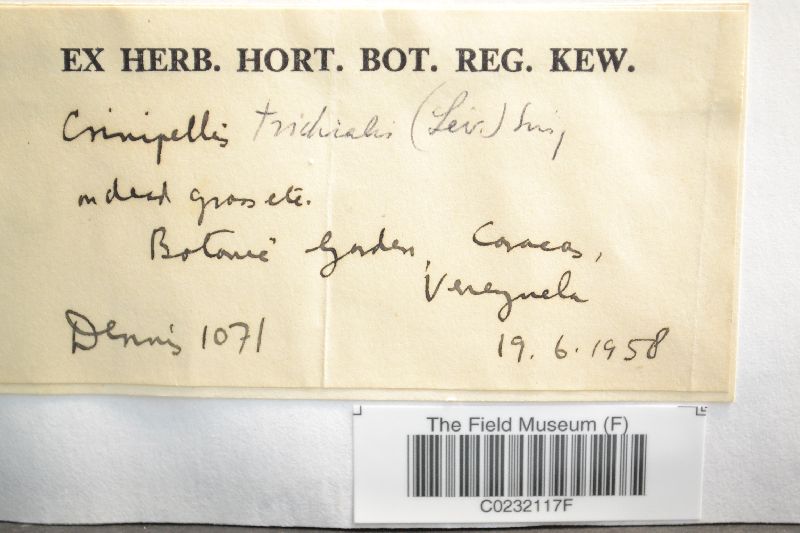 EX HERB. HORT. BOT. REG. KEW.
Crinipellis trichialis (Lév.) Sing
on dead grass etc.
Botanic Garden, Caracas,
Venezuela
Dennis 1071
19.6.1958
The Field Museum (F)
C0232117F